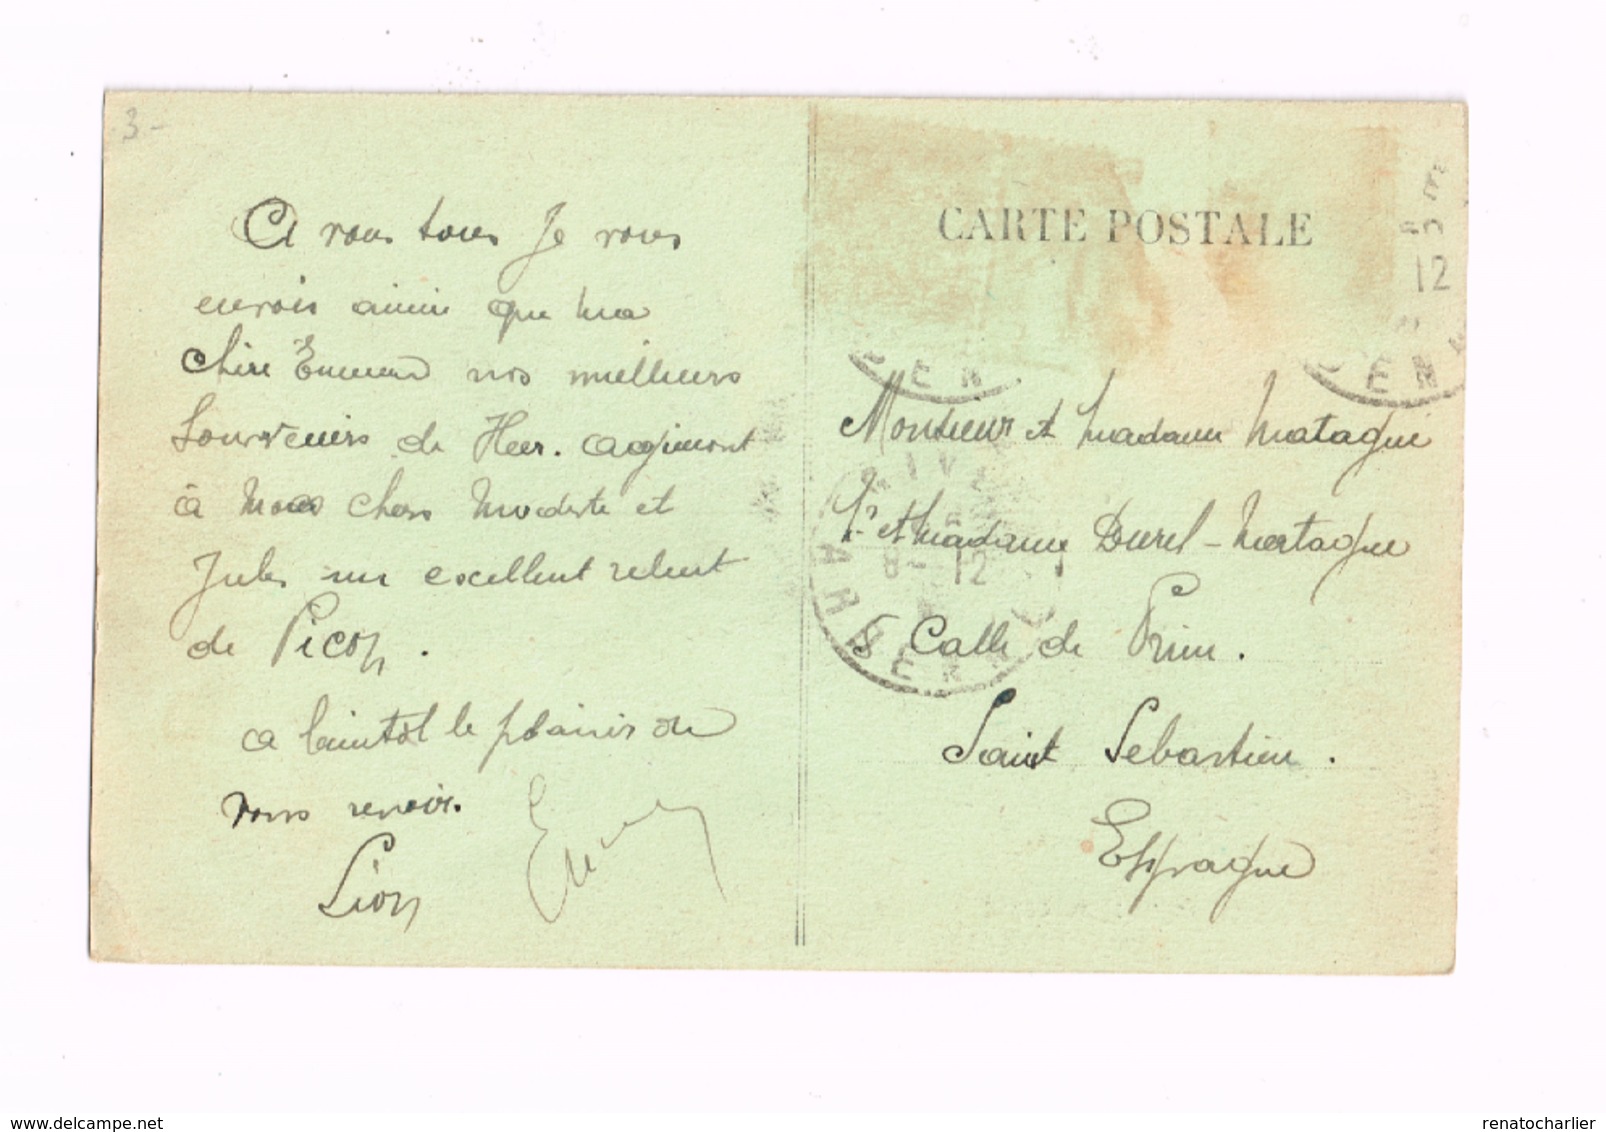 3-
A vous tous Je vous
envois ainsi que ma
chère Emma nos meilleurs
Souvenirs de Heer. Agimont
à nos chers Modeste et
Jules un excellent relent
de Picon.
a bientôt le plaisir de
vous revoir.
Lion Emma
CARTE POSTALE
12
Monsieur et Madame Matague
et Madame Durel-Matague
5 Calle de Prim.
Saint Sebastien.
Espagne
8-12
www.delcampe.net
renatocharlier